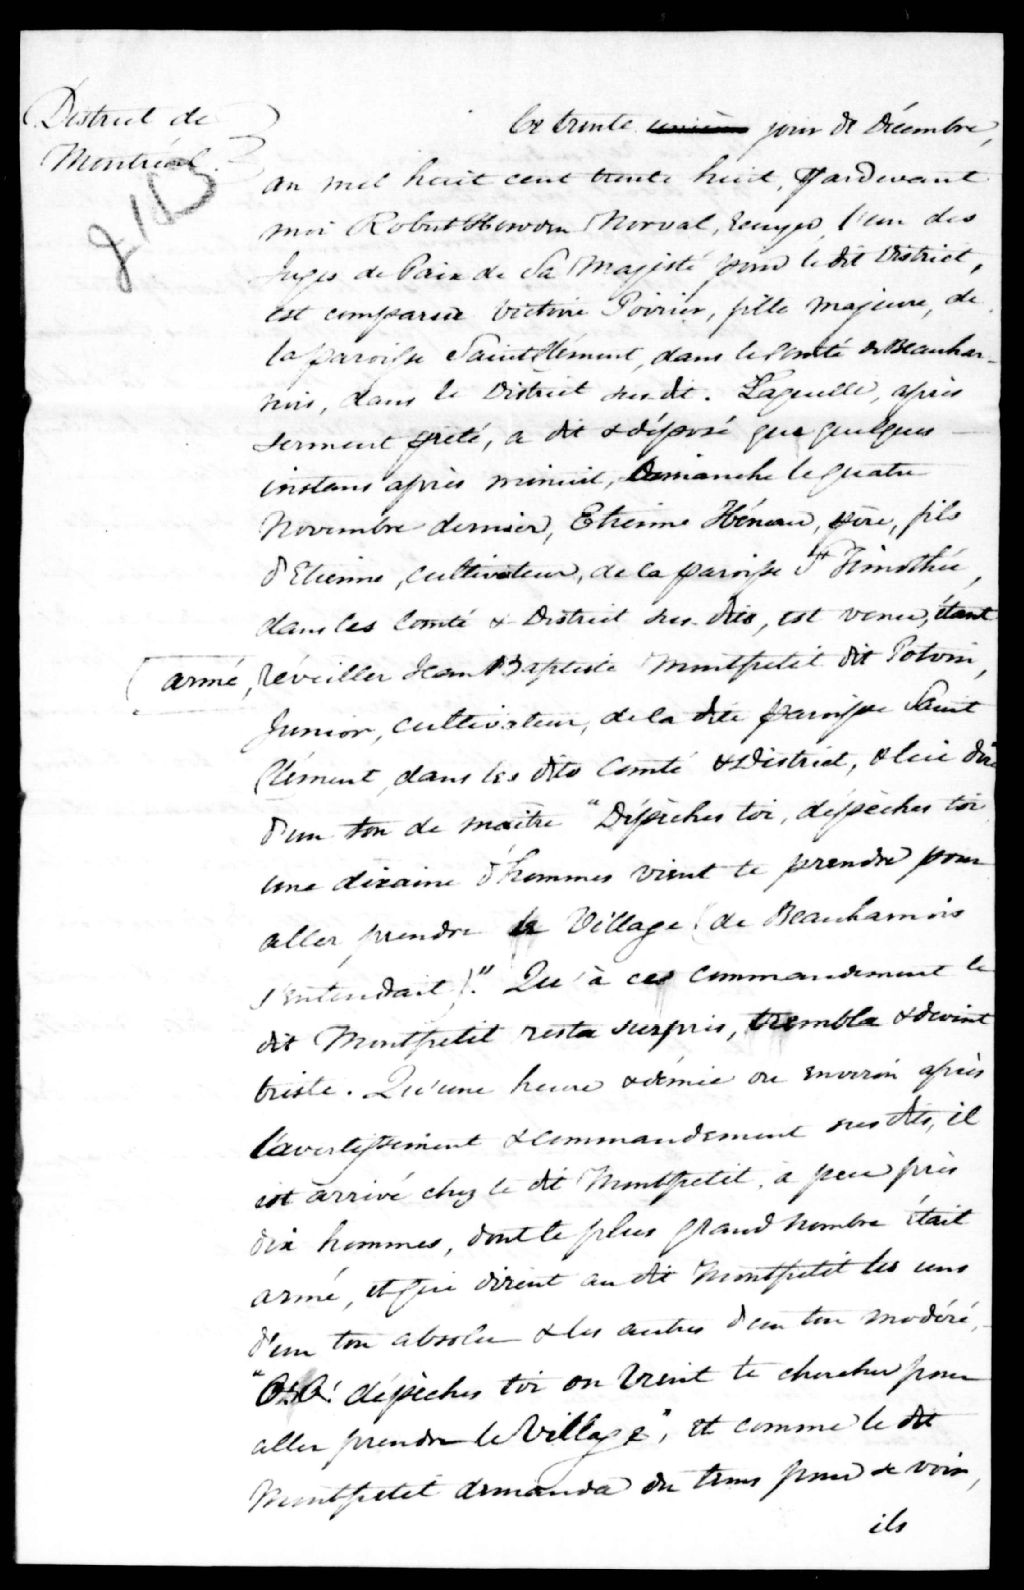 District de
Montréal.
Ce trente unième jour de Décembre,
an mil huit cent trente huit, Pardevant
moi Robert Howden Norval, Ecuyer, l'un des
Juges de Paix de Sa Majesté pour le dit District,
est comparue Victoire Poirier, fille majeure, de
la paroisse Saint Clément, dans le Comté de Beauhar-
nois, dans le District sus-dit. Laquelle, après
serment prêté, a dit & déposé que quelques
instans après minuit, Dimanche le quatre
Novembre dernier, Etienne Héneau, père, fils
d'Etienne, cultivateur, de la paroisse St Timothée,
dans les Comté & District sus-dits, est venu, étant
armé, réveiller Jean Baptiste Montpetit dit Potvin,
Junior, cultivateur, de la dite paroisse Saint
Clément, dans les dits Comté & District, & lui dire
d'un ton de maître "Dépêches toi, dépêches toi
une dizaine d'hommes vient te prendre pour
aller prendre le Village (de Beauharnois
s'entendait)." Qu'à ces commandement le
dit Montpetit resta surpris, trembla & devint
triste. Qu'une heure & démie ou environ après
l'avertissement & commandement sus dits, il
est arrivé chez le dit Montpetit, à peu près
dix hommes, dont le plus grand nombre était
armé, et qui dirent au dit Montpetit les uns
d'un ton absolu & les autres d'un ton modéré,
dépêches toi on vient te chercher pour
aller prendre le Village", et comme le dit
Montpetit demanda du tems pour se voir,
ils